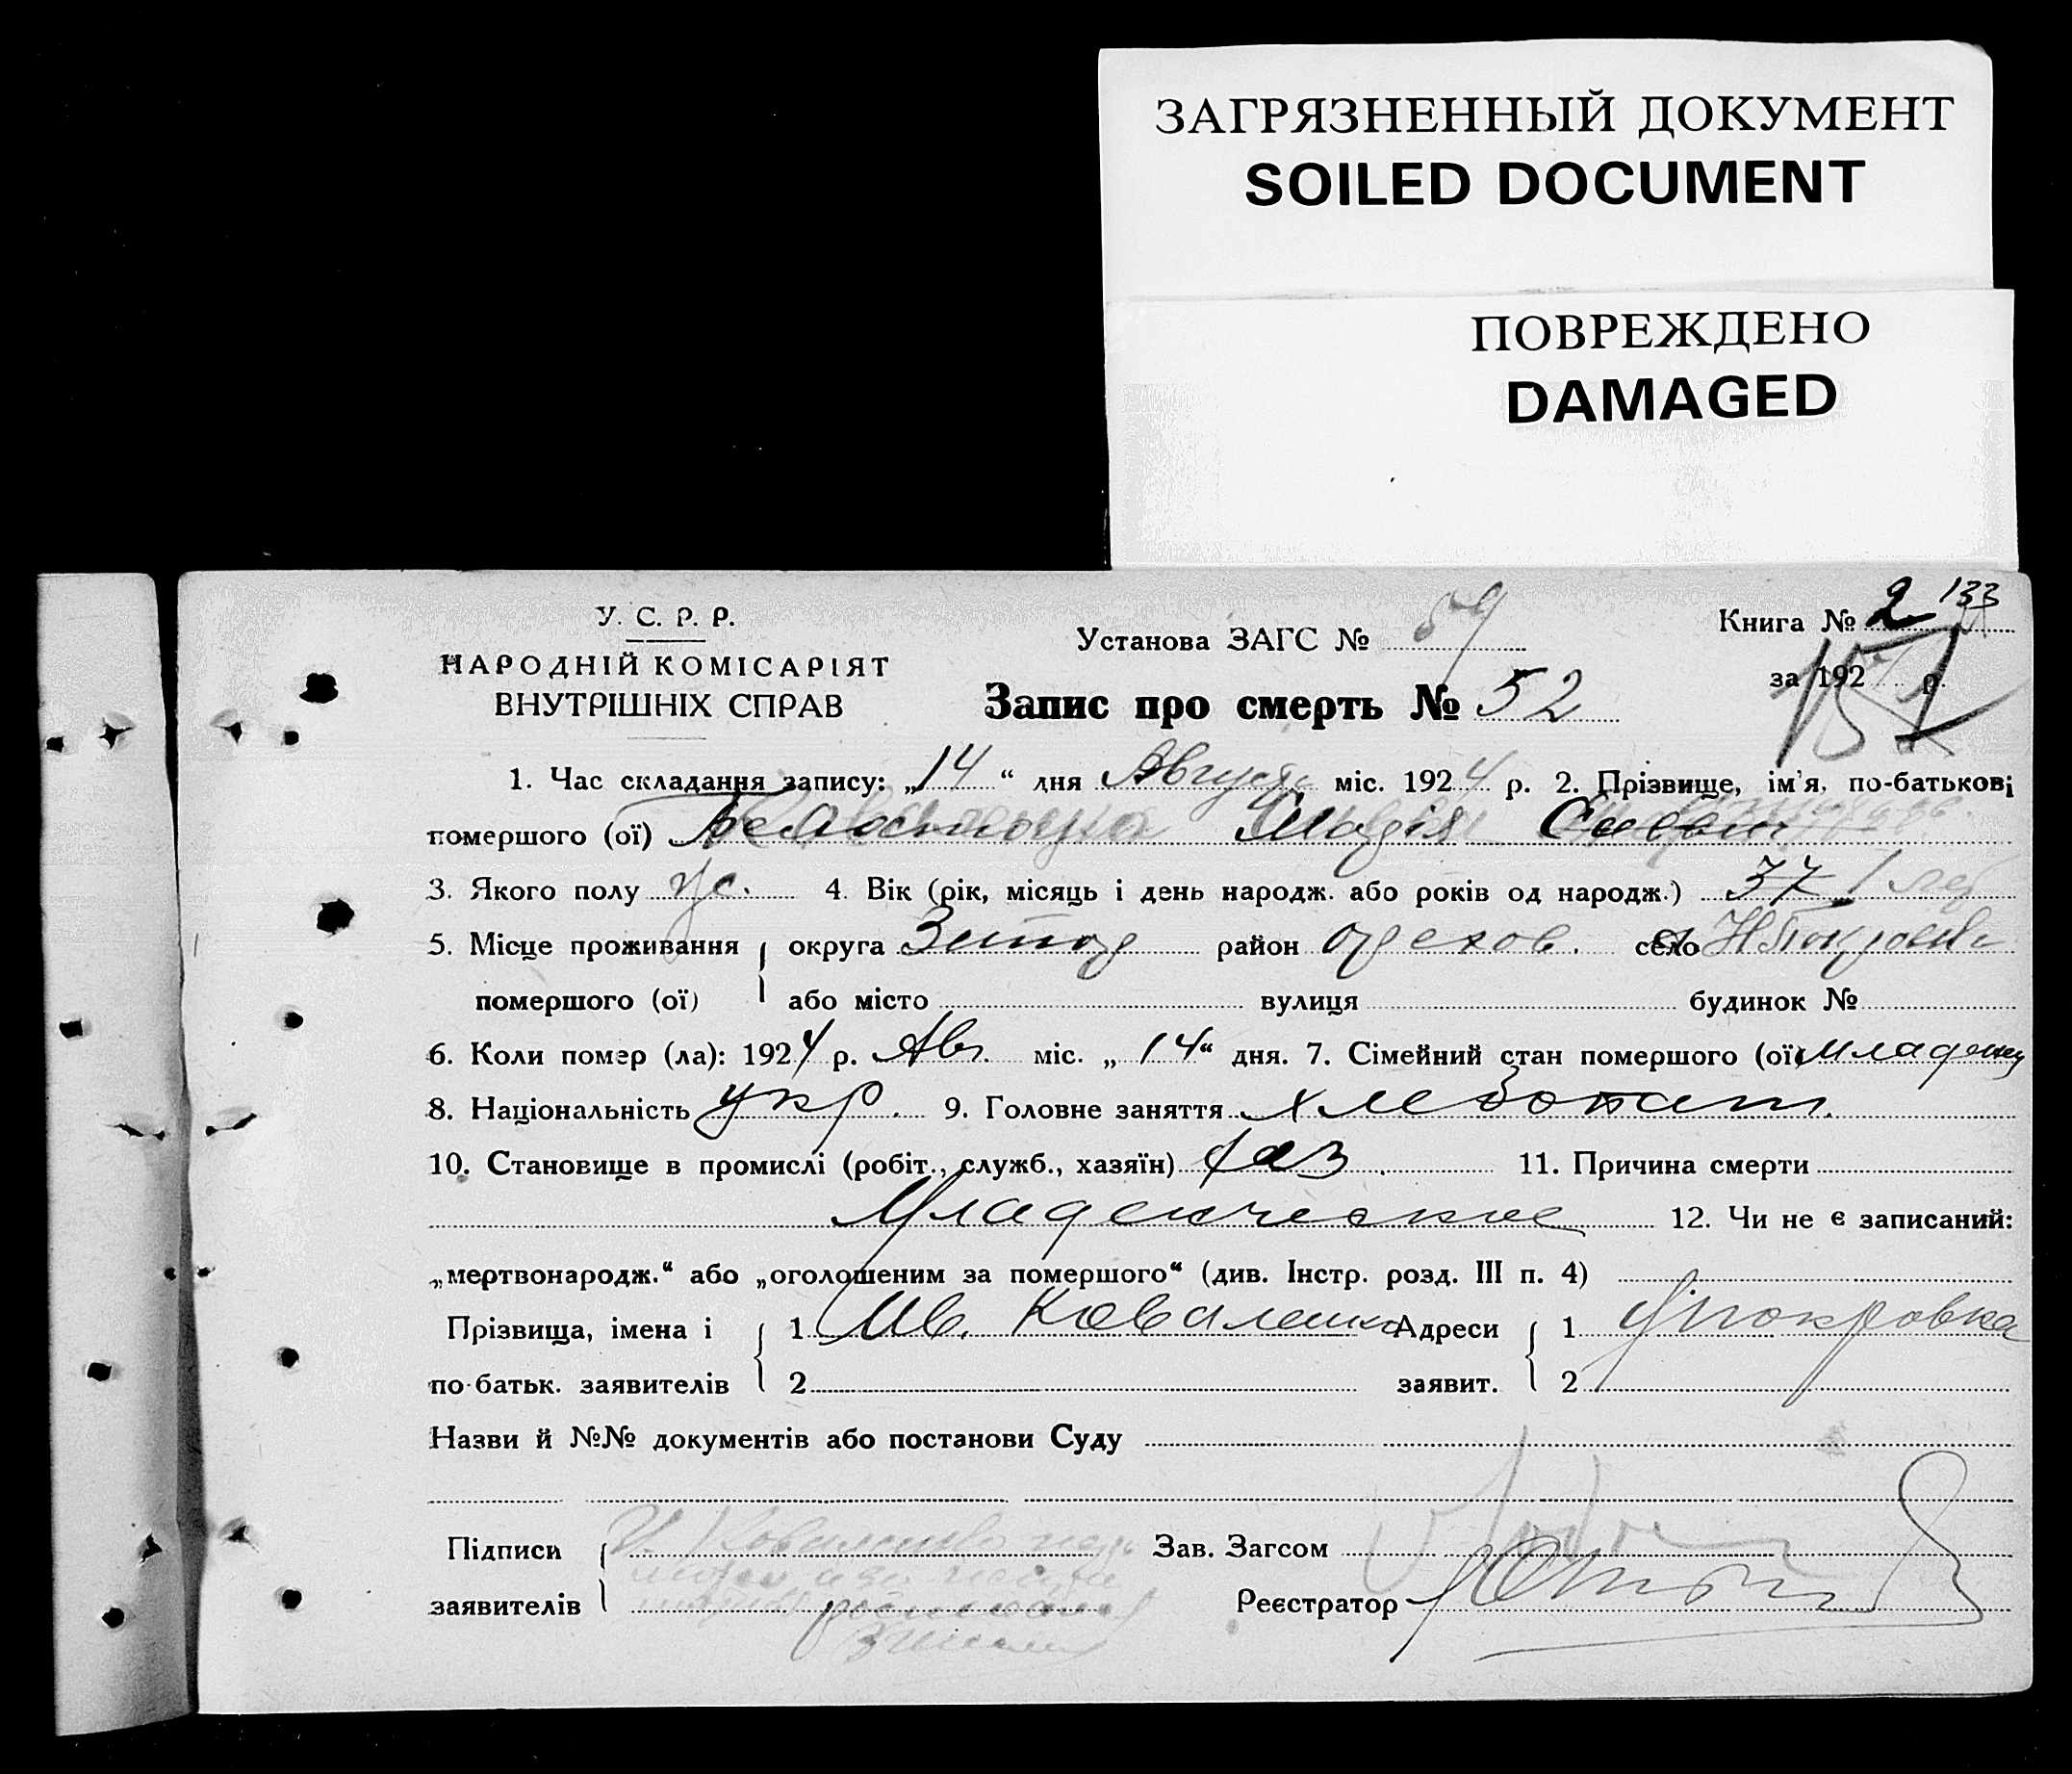 ЗАГРЯЗНЕННЫЙ ДОКУМЕНТ
SOILED DOCUMENT
ПОВРЕЖДЕНО
DAMAGED
У. С. Р. Р.
НАРОДНІЙ КОМІСАРІЯТ
ВНУТРІШНІХ СПРАВ
Установа ЗАГС № 59
Запис про смерть № 52
Книга № 2 133
за 192 р.
151
1. Час складання запису: „14“ дня Августа міс. 1924 р. 2. Прізвище, ім'я, по-батькові
помершого (ої) Марія
3. Якого полу ж. 4. Вік (рік, місяць і день народж. або років од народж.) 37 1
5. Місце проживання округа район Орехов. село
помершого (ої) або місто вулиця будинок №
6. Коли помер (ла): 1924 р. Авг. міс. „14“ дня. 7. Сімейний стан помершого (ої) младенец
8. Національність укр. 9. Головне заняття хлебопаш.
10. Становище в промислі (робіт., служб., хазяїн) хаз. 11. Причина смерти
Младенческие 12. Чи не є записаний:
„мертвонародж.“ або „оголошеним за помершого“ (див. Інстр. розд. III п. 4)
Прізвища, імена і 1 Ив. Коваленко Адреси 1 покровка
по-батьк. заявителів 2 заявит. 2
Назви й №№ документів або постанови Суду
Підписи Зав. Загсом
заявителів Реєстратор